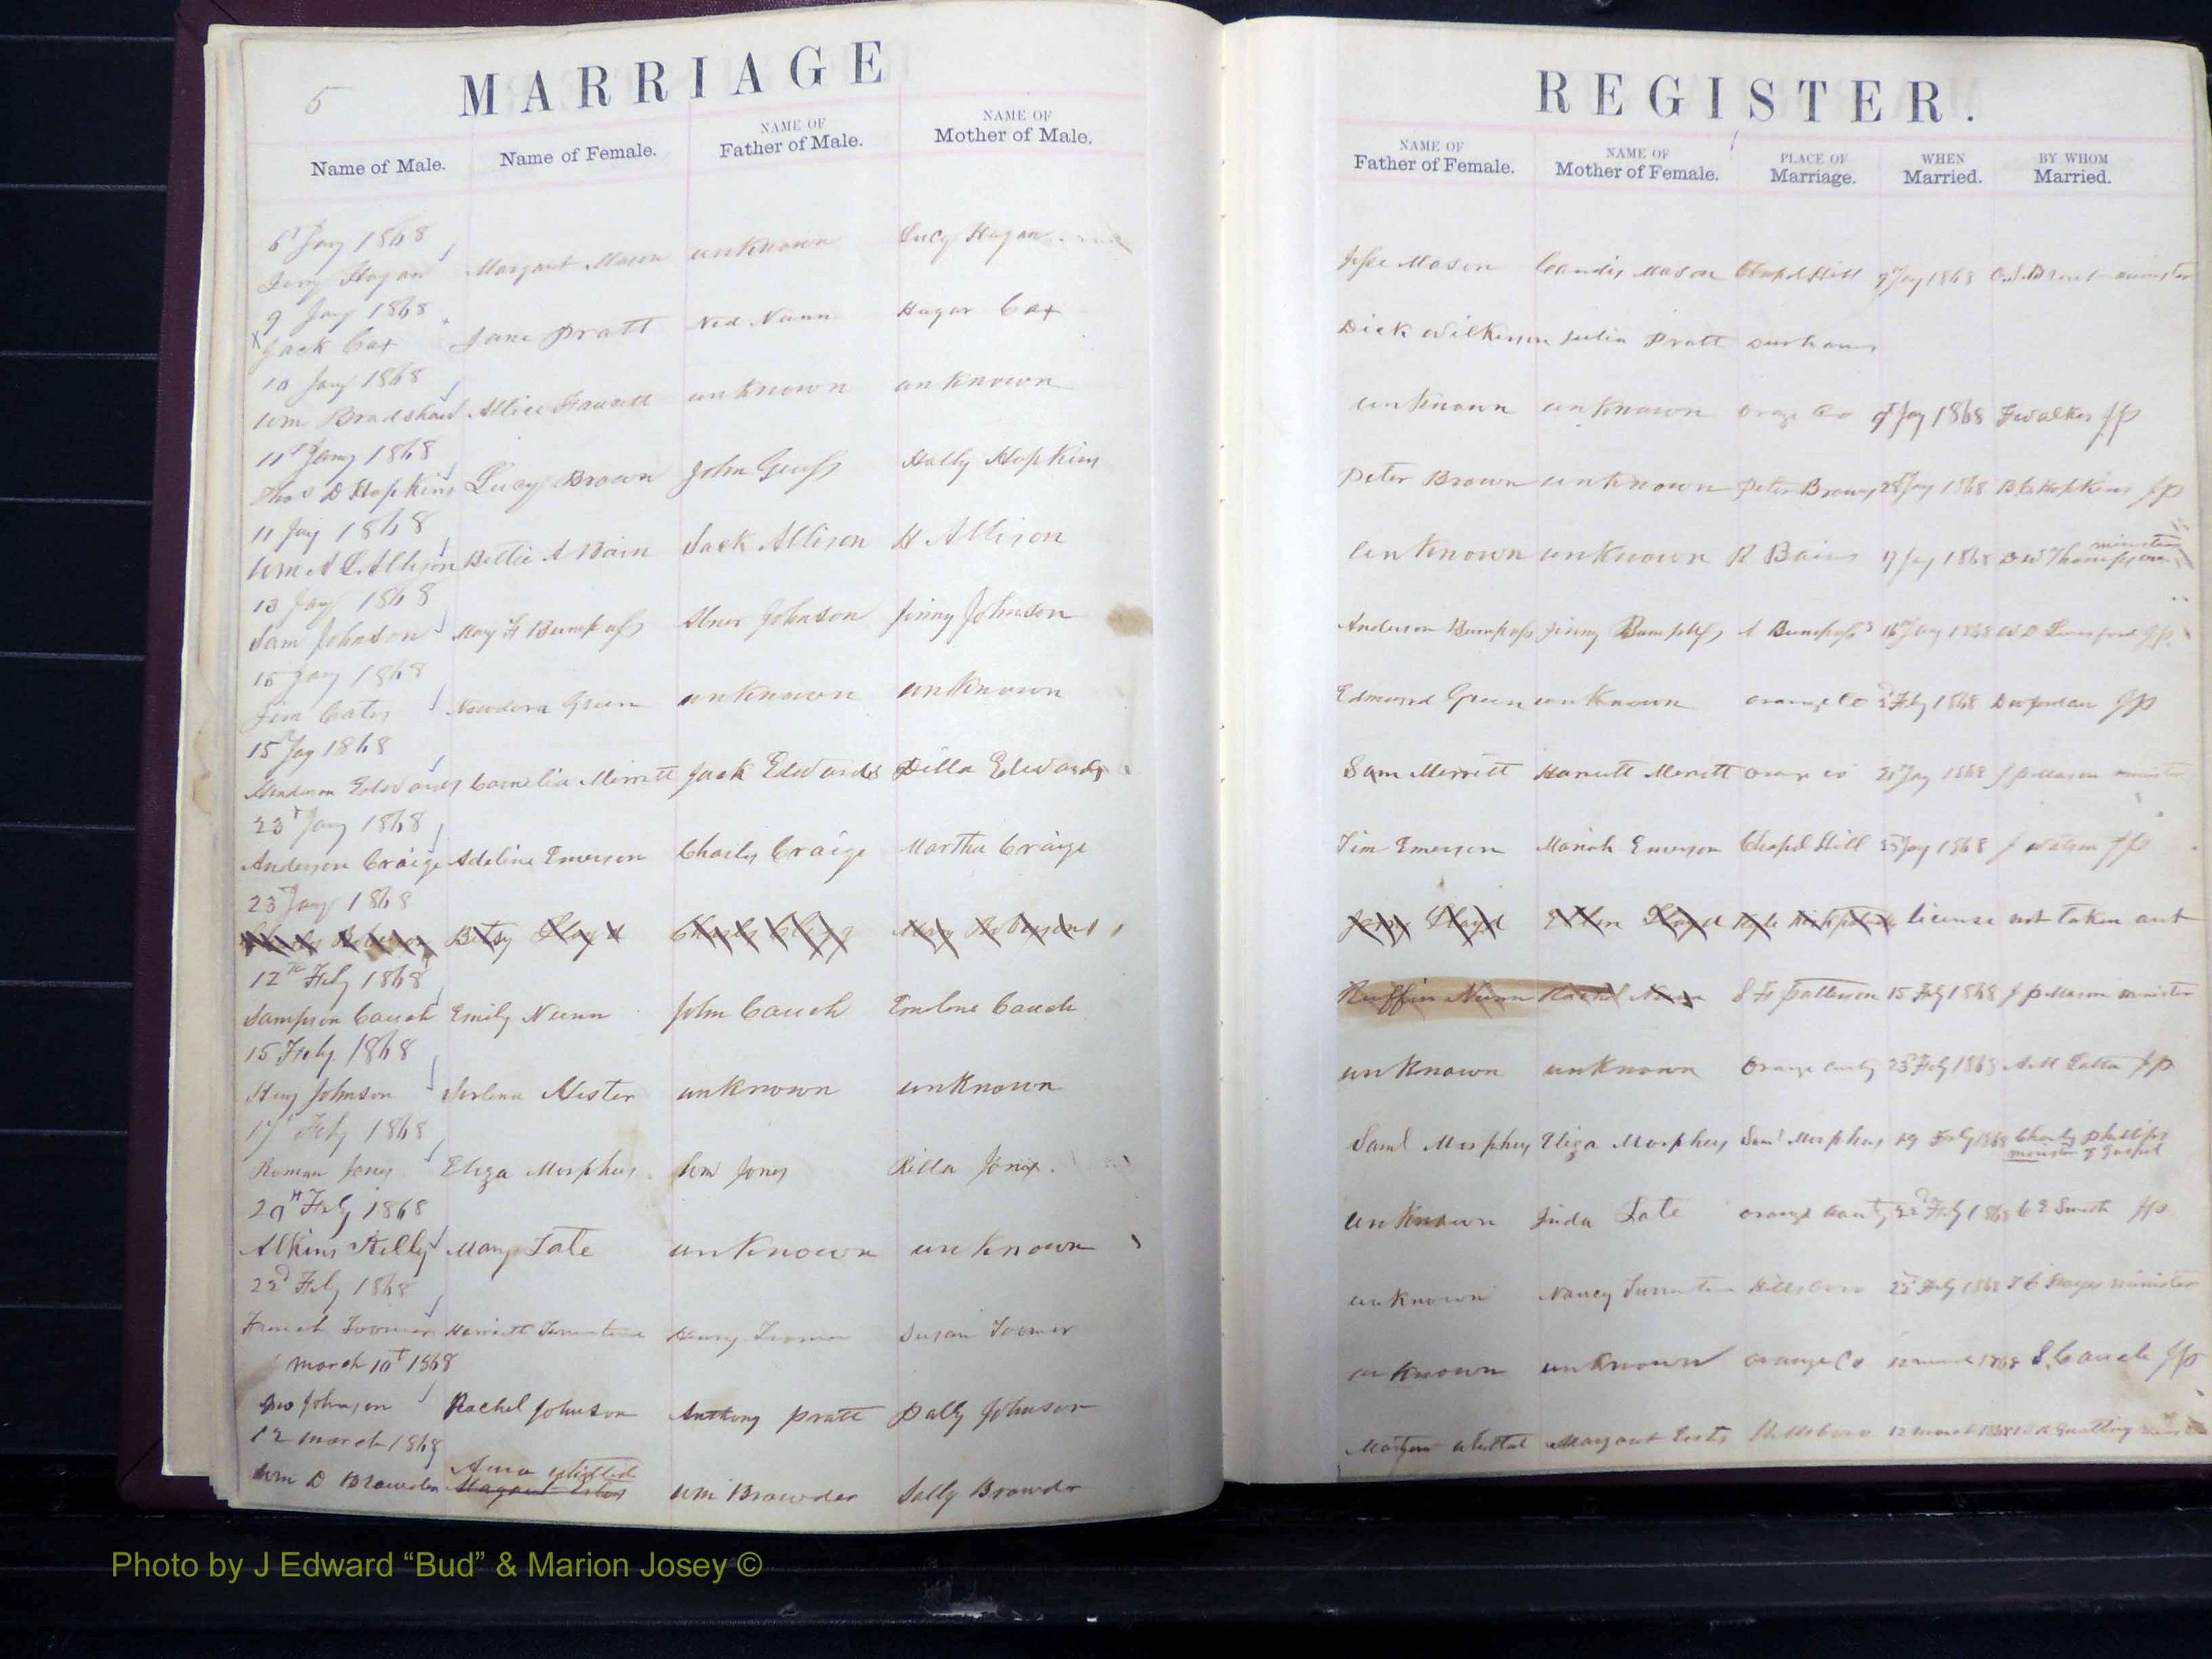 5
MARRIAGE
Name of Male. Name of Female. NAME OF Father of Male. NAME OF Mother of Male.
6t Jany 1868
Hogan Margaret Mason unknown Lucy Hogan
9 Jany 1868
x Jack Cox Jane Pratt Ned Nunn Hagar Cox
10 Jany 1868
Wm Bradshaw Allice Faucett unknown unknown
11t Jany 1868
Thos D Hopkins Lucy Brown John Hopkins
11 Jany 1868
Wm A L Allison Bettie A Bain Jack Allison H Allison
13 Jany 1868
Sam Johnson May F Bumpass Abner Johnson Jinny Johnson
15 Jany 1868
Jim Cates Green unknown unknown
15 Jany 1868
Edwards Cornelia Merritt Jack Edwards Dilla Edwards
23t Jany 1868
Anderson Craige Adeline Emerson Charly Craige Martha Craige
23 Jany 1868
Betsy Lloyd
12th Feby 1868
Sampson Couch Emily Nunn John Couch Emeline Couch
15 Feby. 1868
Heny Johnson unknown unknown
17 Feby 1868
Roman Jones Eliza Morphus Wm Jones Rilla Jones.
20th Feby 1868
Alkins Kelly Mary Tate unknown unknown
22d Feby 1868
Toomer Harriett Henry Toomer Susan Toomer
March 10t 1868
Johnson Rachel Johnson Anthony Pratt Dally Johnson
12 March 1868
Wm D Browder Anna Whitted Wm Browder Sally Browder
Margaret Estes
REGISTER.
NAME OF Father of Female. NAME OF Mother of Female. PLACE OF Marriage. WHEN Married. BY WHOM Married.
Jesse Mason Candis Mason Chapel Hill 9 Jay 1868 minister
Dick Wilkerson Julia Pratt Durhams
unknown unknown Orange Co Jay 1868 F Walker JP
Peter Brown unknown Peter Browns Jay 1868 Hopkins JP
unknown unknown R Bains Jay 1868 D W Thompson minister
Anderson Bumpass Jinny Bumpass A Bumpass 16 Jany 1868 W D Lunsford JP
Edmund Green unknown Orange Co Feby 1868 D W Jordan JP
Sam Merritt Harriett Merritt Orange Co Jay 1868 J P Mason minister
Tim Emerson Mariah Emerson Chapel Hill Jay 1868 J Watson JP
Lloyd Ellen Lloyd license not taken out
Ruffin Nunn Rachel Nunn S F Patterson 15 Feby 1868 J P Mason minister
unknown unknown Orange county 23 Feby 1868 Latta JP
Saml Morphus Eliza Morphus Saml Morphus Feby 1868 Charly Phillips
minister of Gospel
unknown Juda Tate Orange County 22d Feby 1868 Smith JP
unknown Nancy Hillsboro 22 Feby 1868 minister
unknown unknown Orange Co 12 March 1868 S. Couch JP
Whitted Margaret Estes Hillsboro 12 March 1868
Photo by J Edward “Bud” & Marion Josey ©